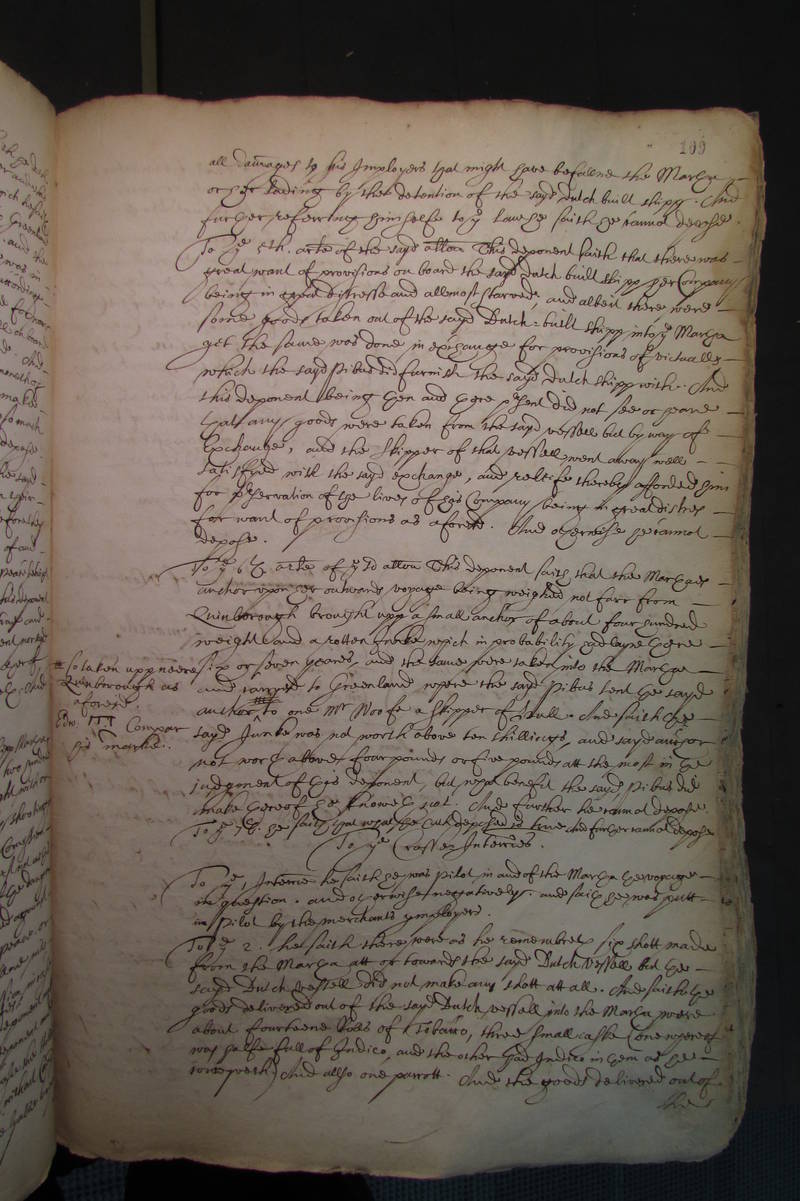 109
all damages to his Imployers that might have befallne the Martha
or her lading by the detention of the sayd Dutch built shipp. And
further referring himselfe to ye Lawe hee saith hee cannot depose.
To ye 5th. arle of the sayd allon This deponent saith that there was
great want of provisions on board the sayd Dutch built shipp her Company
being in great distresse and allmost starved, and albeit there were
some goods taken out of the sayd Dutch-built shipp into ye Martha
yet the same was done in exchange for provisions of victualls
which the sayd Pibus did furnish the sayd Dutch shipp with. And
this deponent being then and there present did not see or
that any goods were taken from the sayd vessell but by way of
Exchange, and the skipper of that vessell went away well
satisfyed with the sayd exchange, and releife thereby afforded him
for preservation of the lives of his Company being in great distres
for want of provisions as aforesd. And otherwise hee cannot
depose.
To ye 6th arle of ye sd allon This deponent saith that the Marthas
anchor upon her outwards voyage being weighed not farr from
Quinborough brought upp a small anchor of about four hundred
weight and a rotten which in probability had layne there
six or seven yeares, and the same were taken into the Martha
and carryed to Greenland where the sayd Pibus lent the sayd
anchor to one Mr Woofe a skipper of Hull. And saith the
sayd Junke was not worth above ten shillings, and sayd anchor
not worth above four pounds or five pounds att the most in the
judgment of this deponent, but what benefit the sayd Pibus did
make thereof hee knoweth not. And further he cannot depose.
so taken upp neere
Quinborough as
aforesd.
Edw. Compar
his marke.
To ye 7th. he saith that what hee hath deposed is true And further cannot depose
To ye Crosse Interries.
To ye 1 Interrie he saith hee was pilot in and of the Martha the voyage
in question. and otherwise negatively. and saith hee was putt
in Pilot by the merchants ymployers.
To ye 2. he saith there were as he remembreth six shott made
from the Martha att or towards the sayd Dutch vessell but the
sayd Dutch vessell did not make any shott att all. And saith the
goods delivered out of the sayd Dutch vessell into the Martha were
about fourteene Rolls of Tobacco, three small caske (one whereof
was halfe full of Indico, and the other had Indico in them as hee
) And allso one parrott. And the goods delivered out of
the